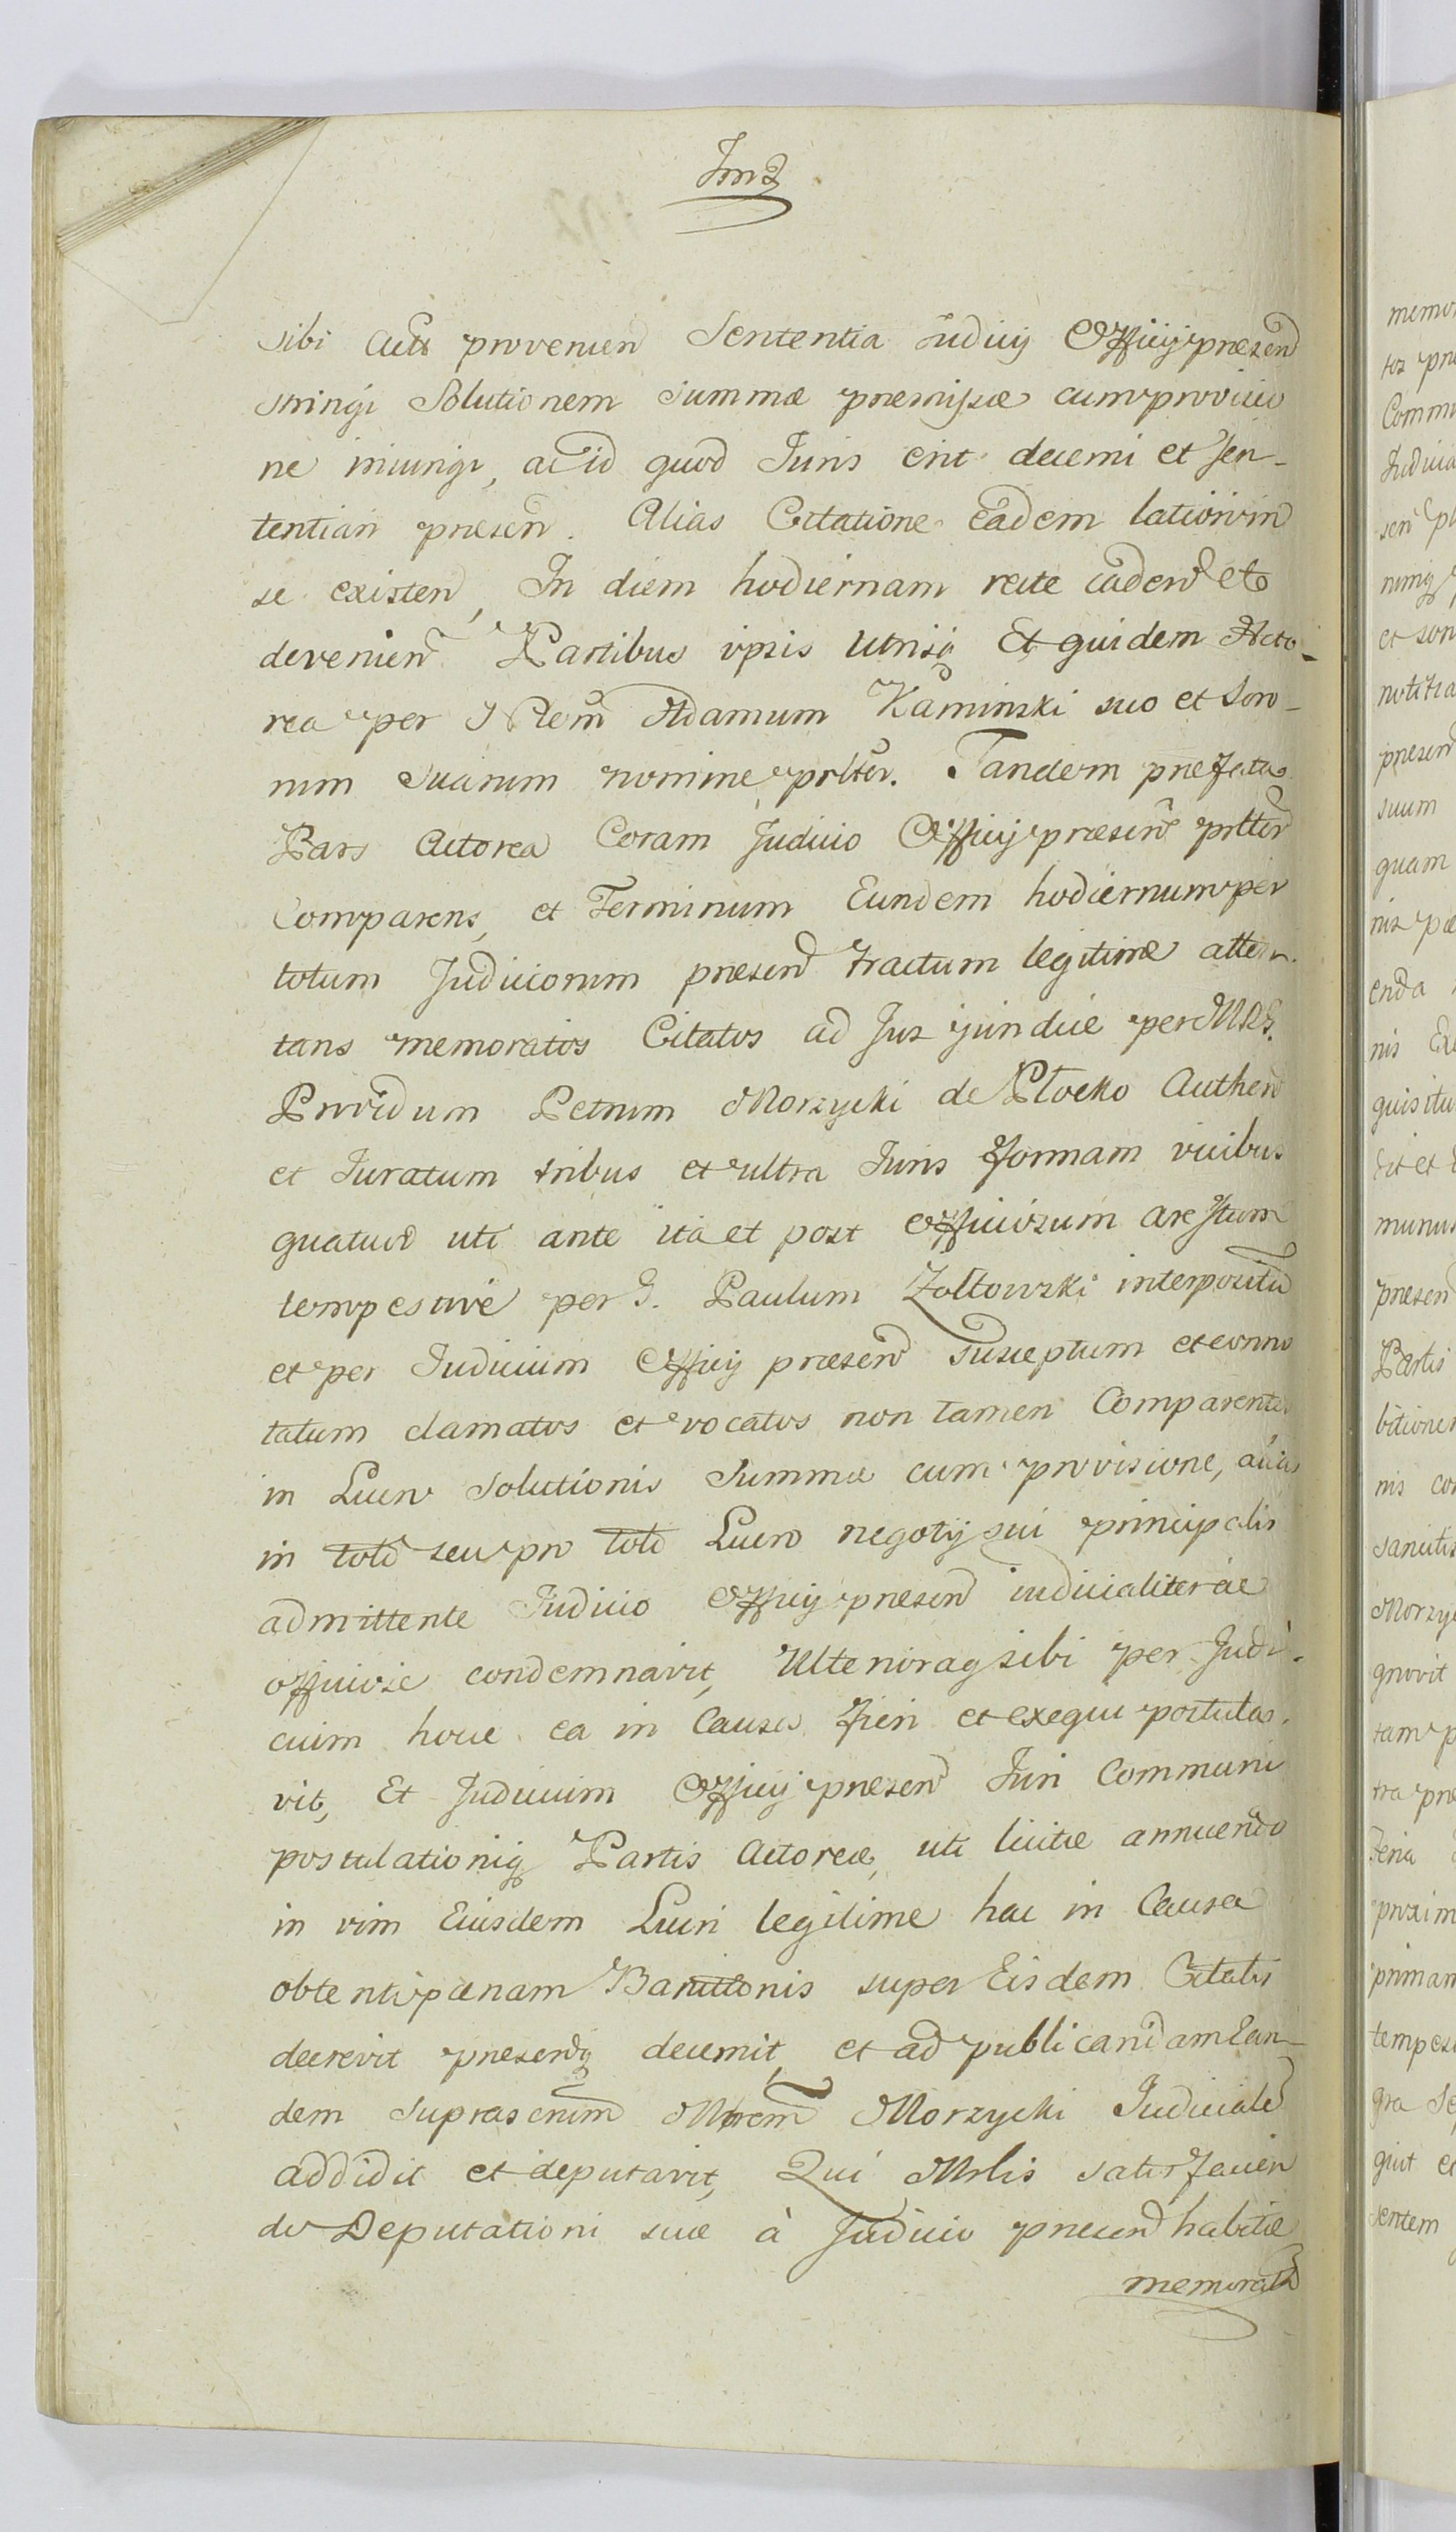 sibi provenien Sententia Judicij Officij presen
stringi Solutionem summæ premissæ cum provisio
ne iniungi, ac id quod Juris erit decerni et sen-
tentiari presen. Alias Citatione eadem lationem in
se existen, In diem hodiernam recte caden et
devenien Partibus ipsis Utrisq Et quidem Acto-
rea per Adamum Kaminski suo et Soro-
rum Suarum nomine prltter. Tandem præfata
Pars Actorea Coram Judicio Officij præsen prltter
Comparens, et Terminum Eundem hodiernum per
totum Judiciorum presen tractum legitime atten-
tans memoratos Citatos ad Jus juridice per
Providum Petrum Morzycki de Płocko Authen
et Juratum tribus et ultra Juris formam vicibus
quatuor uti ante ita et post officiosum arestum
tempestive per G. Paulum Zołtowski interpositu
et per Judicium Officij præsen Susceptum et conno
tatum clamatos et vocatos non tamen Comparentes
in Lucro Solutionis Summæ cum provisione, alias
in toto seu pro toto Lucro negotij sui principalis
admittente Judicio Officij presen iudicialiter ac
officiose condemnavit, Ulterioraq sibi per Judi-
cium hocce ea in Causa fieri et exequi postula-
vit, Et Judicium Officij presen Juri Communi
postulationiq Partis Actoreæ, uti licitæ annuendo
in vim Eiusdem Lucri legitime hac in Causa
obtenti pænam Bannitionis super Eisdem Citatis
decrevit presenq decernit, et ad publicandam Ean-
dem suprascrium Mrem Morzycki Judiciale
addidit et deputavit, Qui Mrlis satisfacien
do Deputationi suæ à Judicio presen habitæ
memorat
memo
Comm
Judicia
et son
notitia
presen
suum
quam
enda
nis
quisitu
munus
presen
Partis
bitione
nis
Morzy
gnovit
tam
proxim
priman
tempes
gra
sentem